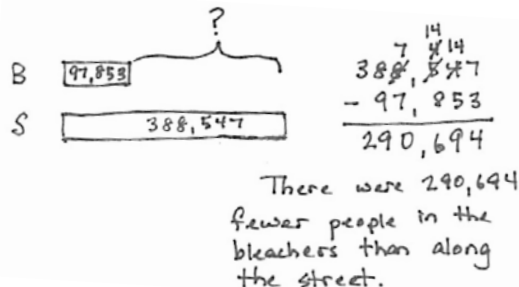 ?
B 97,853
S 388,547
14
7 4 14
388,547
- 97,853
290,694
There were 290,694
fewer people in the
bleachers than along
the street.